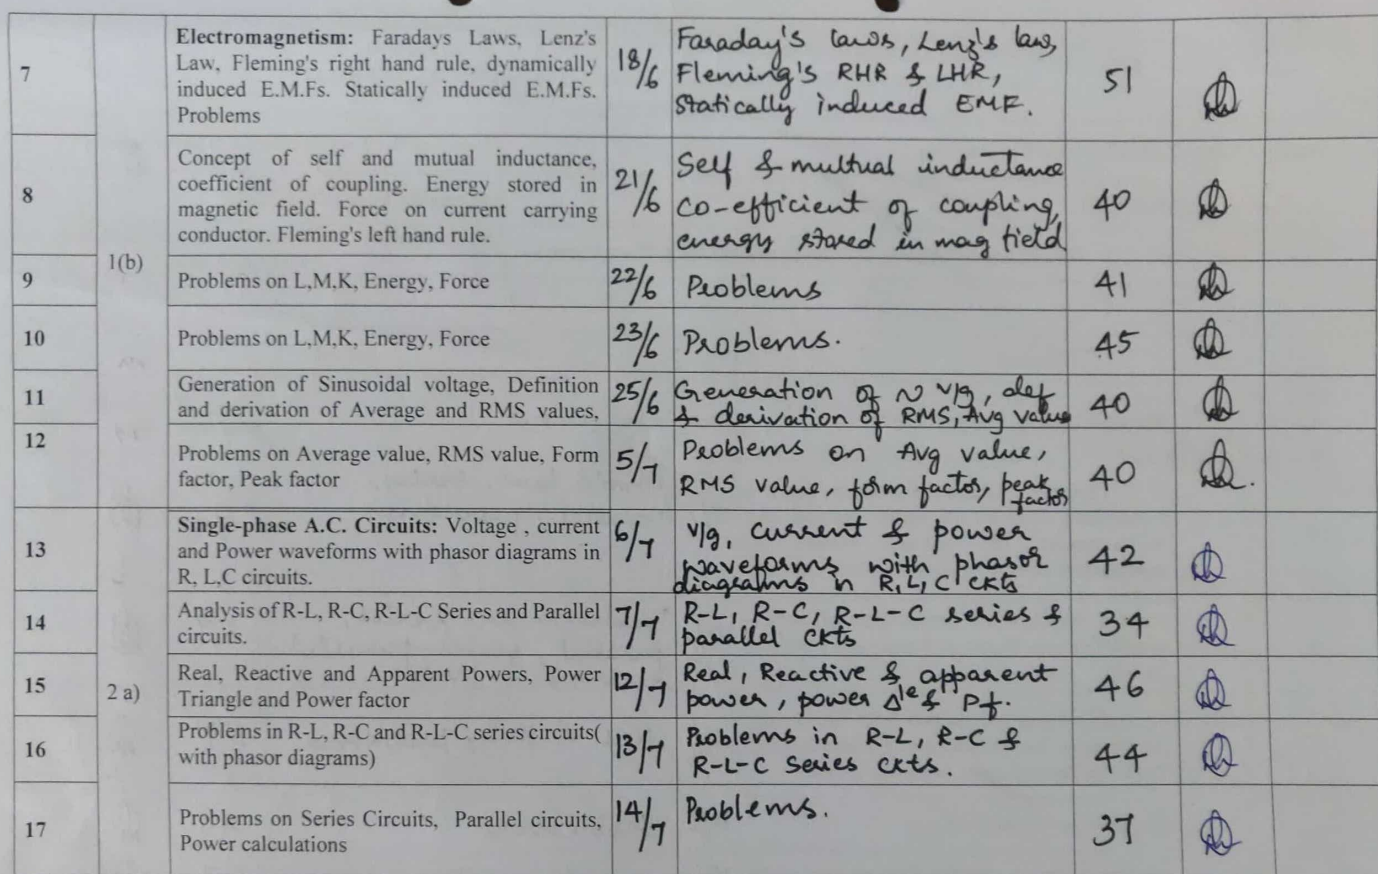 7
Electromagnetism: Faradays Laws, Lenz's
Law, Fleming's right hand rule, dynamically
induced E.M.Fs. Statically induced E.M.Fs.
Problems
18/6
Faraday's laws, Lenz's law,
Fleming's RHR & LHR,
Statically induced EMF.
51
8
Concept of self and mutual inductance,
coefficient of coupling. Energy stored in
magnetic field. Force on current carrying
conductor. Fleming's left hand rule.
21/6
Self & multual inductance
co-efficient of coupling,
energy stored in mag field
40
1(b)
9
Problems on L,M,K, Energy, Force
22/6
Problems
41
10
Problems on L,M,K, Energy, Force
23/6
Problems.
45
11
Generation of Sinusoidal voltage, Definition
and derivation of Average and RMS values,
25/6
Generation of ~ v/g, def
& derivation of RMS, Avg value
40
12
Problems on Average value, RMS value, Form
factor, Peak factor
5/7
Problems on Avg value,
RMS value, form factor, peak
factor
40
13
Single-phase A.C. Circuits: Voltage , current
and Power waveforms with phasor diagrams in
R, L,C circuits.
6/7
v/g, current & power
waveforms with phasor
diagrams in R, L, C ckts
42
14
Analysis of R-L, R-C, R-L-C Series and Parallel
circuits.
7/7
R-L, R-C, R-L-C series &
parallel ckts
34
15
2 a)
Real, Reactive and Apparent Powers, Power
Triangle and Power factor
12/7
Real, Reactive & apparent
power, power Δle & Pf.
46
16
Problems in R-L, R-C and R-L-C series circuits(
with phasor diagrams)
13/7
Problems in R-L, R-C &
R-L-C Series ckts.
44
17
Problems on Series Circuits, Parallel circuits,
Power calculations
14/7
Problems.
37